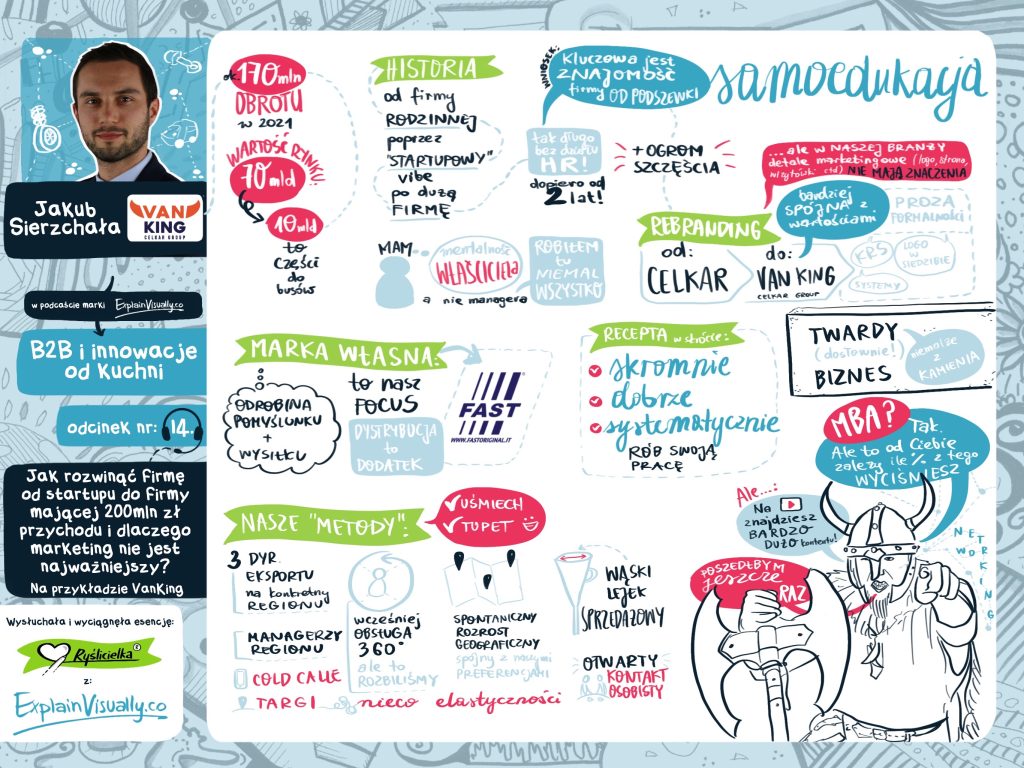 Jakub
Sierzchała
VAN
KING
CELKAR GROUP
w podcaście marki ExplainVisually.co
B2B i innowacje
od Kuchni
odcinek nr: 14.
Jak rozwinąć firmę
od startupu do firmy
mającej 200mln zł
przychodu i dlaczego
marketing nie jest
najważniejszy?
Na przykładzie VanKing
Wysłuchała i wyciągnęła esencję:
Ryślicielka
z:
ExplainVisually.co
ok. 170mln
OBROTU
w 2021
WARTOŚĆ RYNKU:
70 mld
10 mld
to
CZĘŚCI
do
busów
HISTORIA
od firmy
RODZINNEJ
poprzez
"STARTUPOWY"
vibe
po dużą
FIRMĘ
WNIOSEK:
Kluczowa jest
ZNAJOMOŚĆ
firmy OD PODSZEWKI
samoedukacja
tak długo
bez działu
HR!
dopiero od
2 lat!
+ OGROM
SZCZĘŚCIA
...ale w NASZEJ BRANŻY
detale marketingowe (logo, strona,
wizytówki itd) NIE MAJĄ ZNACZENIA
MAM
mentalność
WŁAŚCICIELA
a nie managera
ROBIŁEM
tu
NIEMAL
WSZYSTKO
REBRANDING
bardziej
SPÓJNA z
wartościami
PROZA
FORMALNOŚCI
od:
CELKAR
do:
VAN KING
CELKAR GROUP
KRS
LOGO
w
SIEDZIBIE
SYSTEMY
MARKA WŁASNA:
ODROBINA
POMYŚLUNKU
+
WYSIŁKU
to nasz
FOCUS
DYSTRYBUCJA
to
DODATEK
FAST
WWW.FASTORIGINAL.IT
RECEPTA w skrócie:
skromnie
dobrze
systematycznie
RÓB SWOJĄ
PRACĘ
TWARDY
(dosłownie!)
BIZNES
niemalże
z
KAMIENIA
MBA?
Tak.
Ale to od Ciebie
zależy ile % z tego
WYCIŚNIESZ
Ale...:
Na
znajdziesz
BARDZO
DUŻO kontentu!
NETWORKING
POSZEDŁBYM
jeszcze
RAZ
NASZE "METODY":
UŚMIECH
TUPET
3 DYR.
EKSPORTU
na konkretny
REGIONU
MANAGERZY
REGIONU
COLD CALLE
TARGI
wcześniej
OBSŁUGA
360°
ale to
ROZBILIŚMY
nieco elastyczności
SPONTANICZNY
ROZROST
GEOGRAFICZNY
spójny z naszymi
PREFERENCJAMI
WĄSKI
LEJEK
SPRZEDAŻOWY
OTWARTY
KONTAKT
OSOBISTY